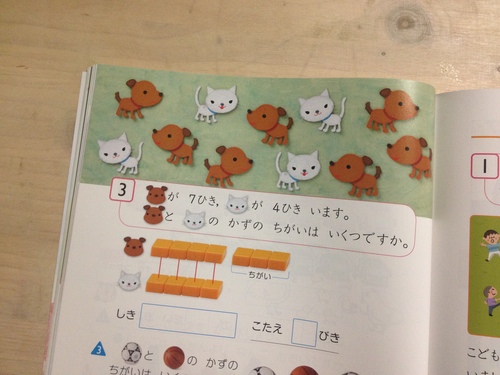 3
が 7ひき, が 4ひき います。
と の かずの ちがいは いくつですか。
ちがい
しき
こたえ ぴき
3 と の かずの
ちがいは
1
こども